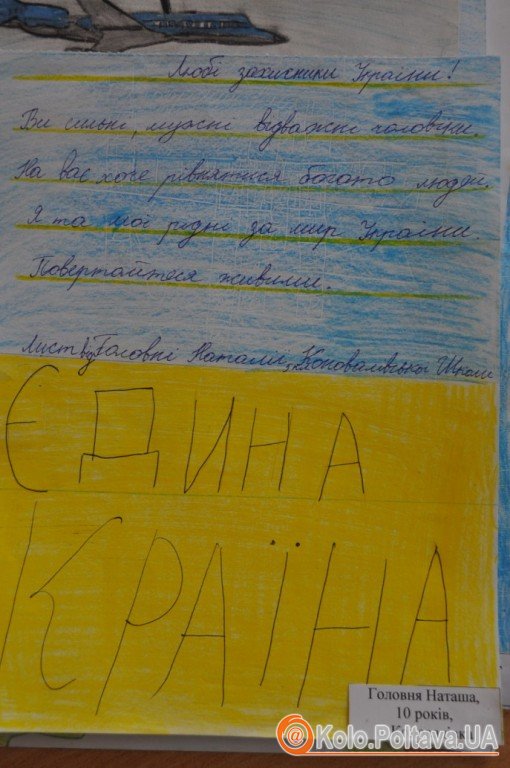 Любі захисники України!
Ви сильні, мужні відважні чоловіки.
На вас хоче рівнятися багато людей.
Я та мої рідні за мир України.
Повертайтеся живими.
Лист від Головні Наталі, Коновалівської Школи
ЄДИНА
КРАЇНА
Головня Наташа,
10 років,
Kolo.Poltava.UA